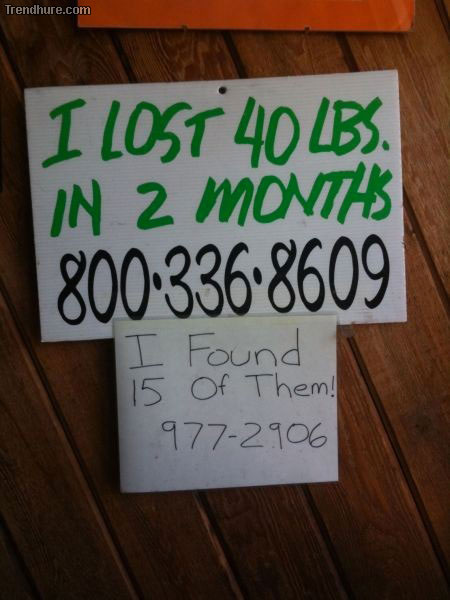 Trendhure.com
I LOST 40 LBS.
IN 2 MONTHS
800·336·8609
I Found
15 Of Them!
977-2906